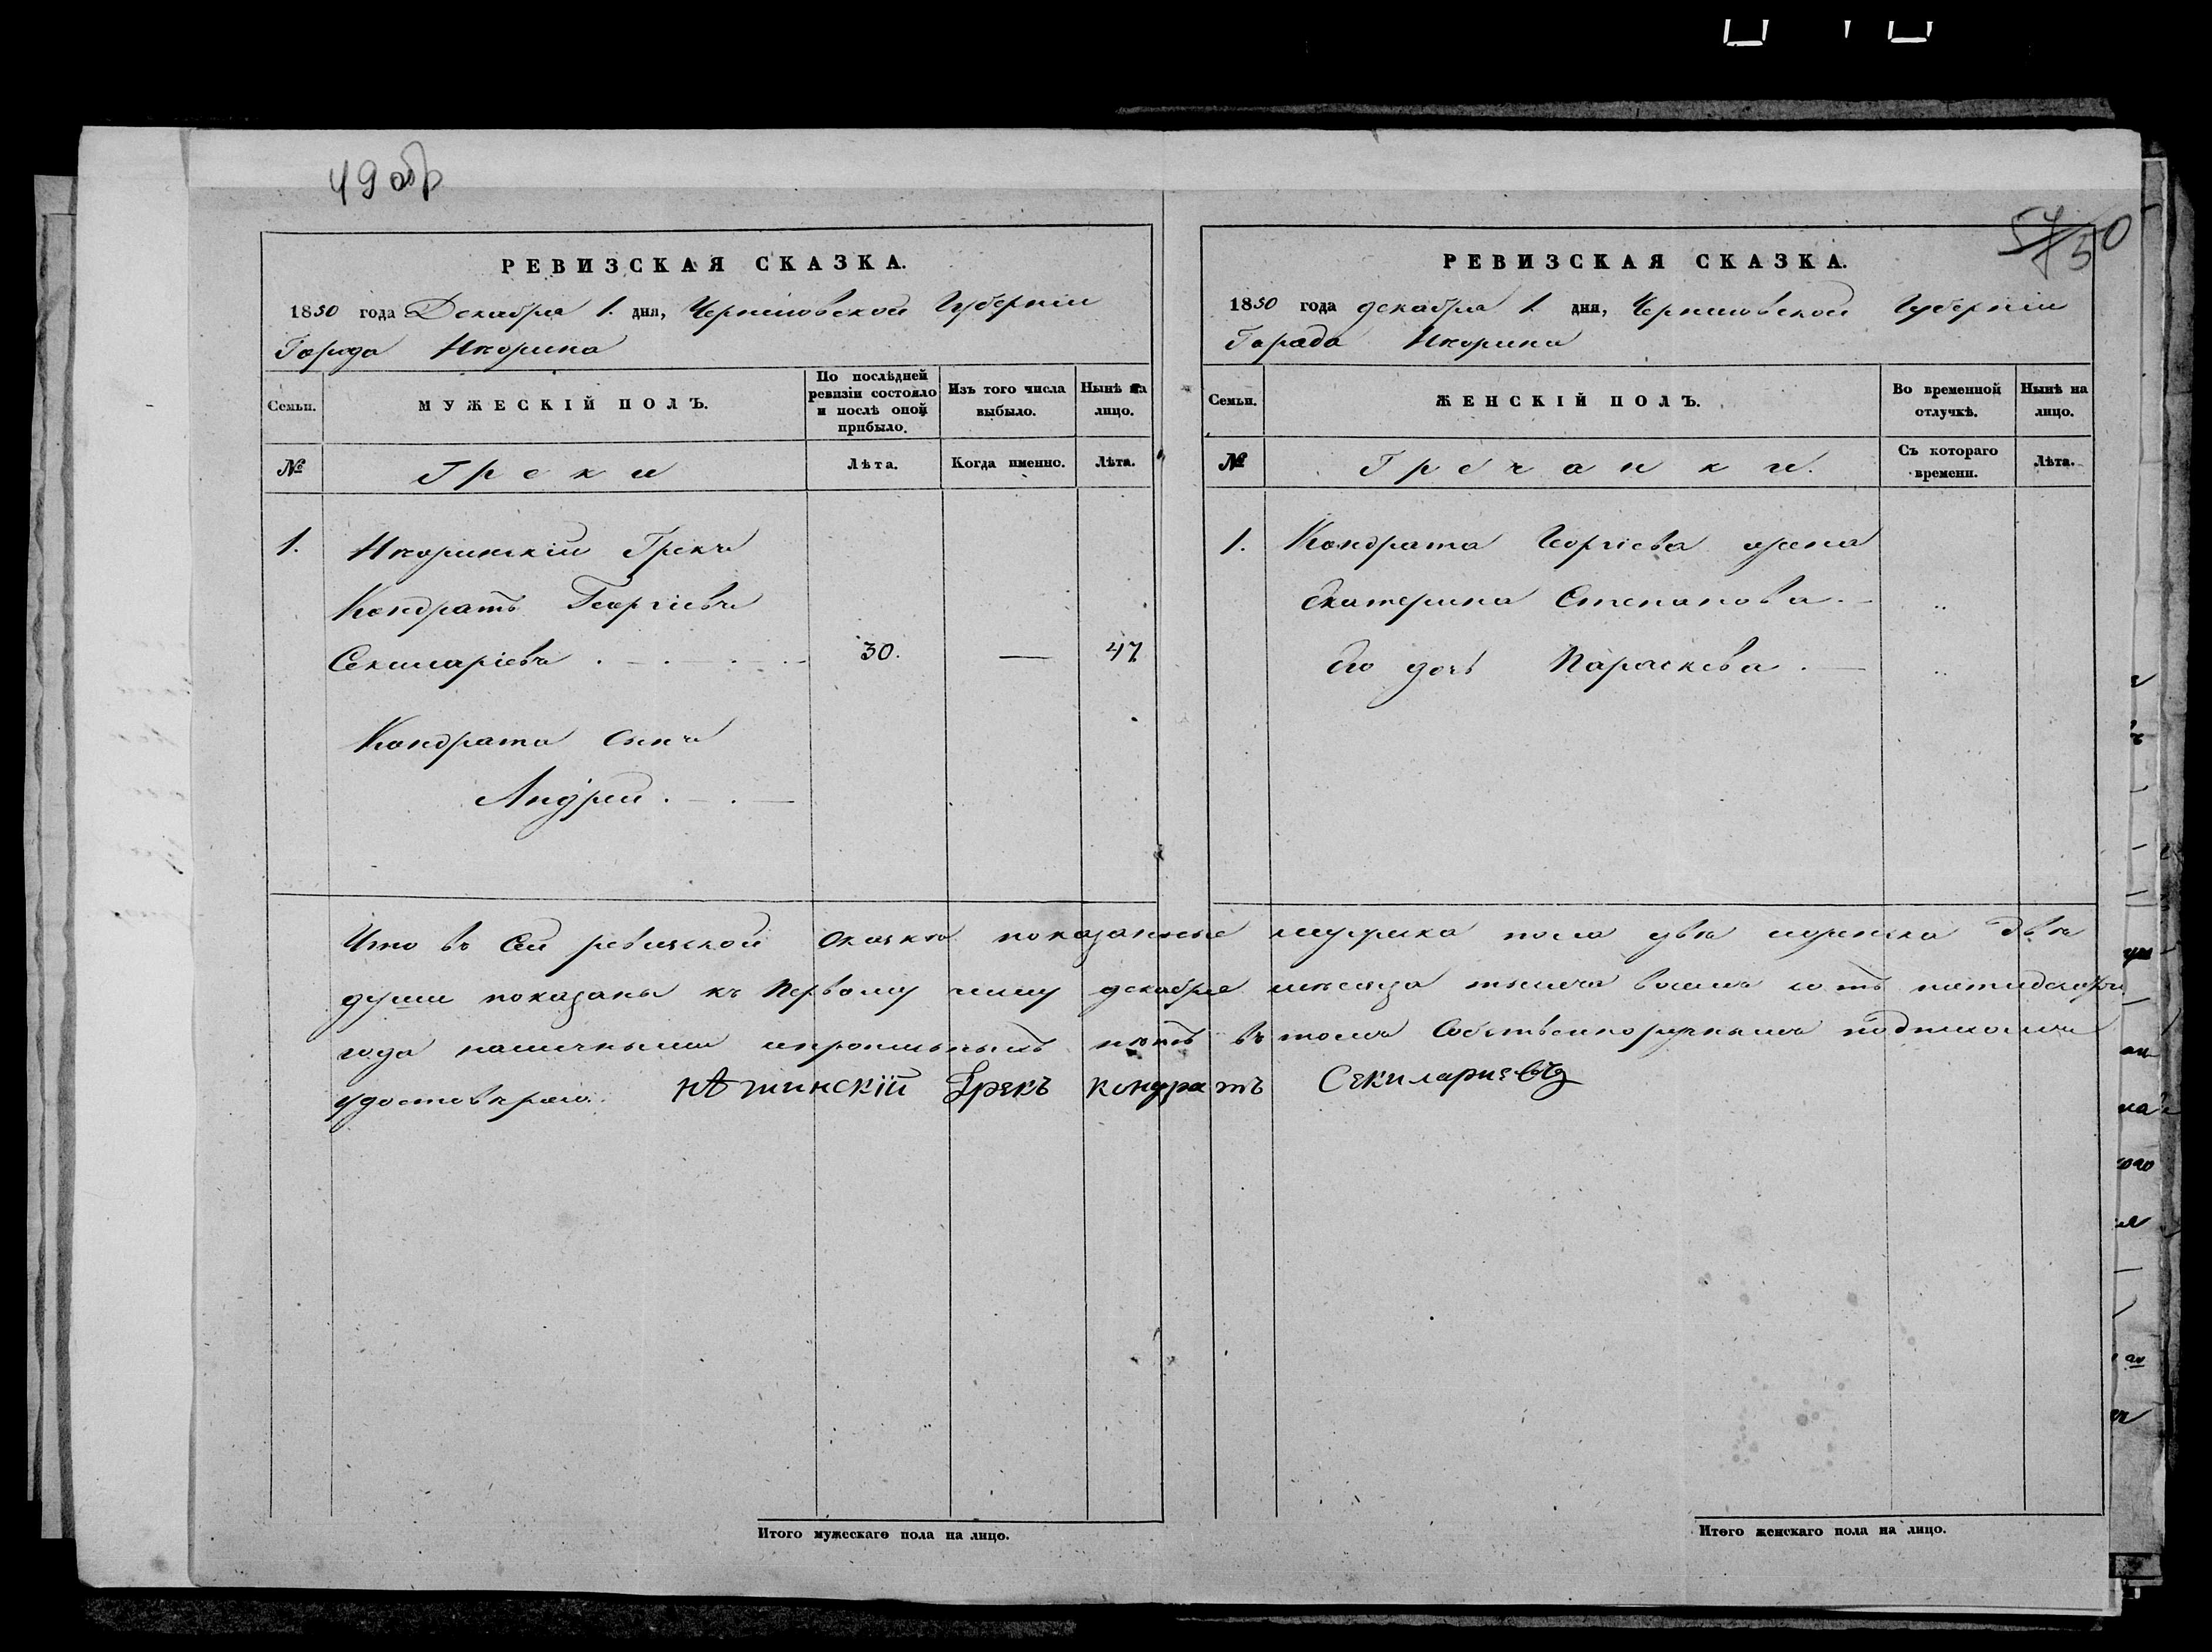 49 обр
57 50
РЕВИЗСКАЯ СКАЗКА.
1850 года Декабря 1. дня, Черниговской Губерніи
Города Нѣжина
Семьи.
МУЖЕСКІЙ ПОЛЪ.
По послѣдней ревизіи состояло и послѣ оной прибыло.
Изъ того числа выбыло.
Нынѣ на лицо.
№
Греки
Лѣта.
Когда именно.
Лѣта.
1. Нѣжинскій Грекъ
Кондратъ Георгіевъ
Секиларіевъ . — . — . — 30. — 47
Кондрата сынъ
Андрей . — . —
РЕВИЗСКАЯ СКАЗКА.
1850 года декабря 1. дня, Черниговской Губерніи
Города Нѣжина
Семьи.
ЖЕНСКІЙ ПОЛЪ.
Во временной отлучкѣ.
Нынѣ на лицо.
№
Гречанки.
Съ котораго времени.
Лѣта.
1. Кондрата Георгіева жена
Екатерина Степанова . — „
Его дочь Параскева . — „
Что въ сей ревизской сказкѣ показанные мужеска пола двѣ женска двѣ
души показаны къ первому числу декабря мѣсяца тысяча восемь сотъ пятидесятаго
года наличными и прописныхъ нѣтъ въ томъ собственноручнымъ подписомъ
удостовѣряю. нѣжинскій Грекъ кондратъ Секилариевъ
Итого мужескаго пола на лицо.
Итого женскаго пола на лицо.